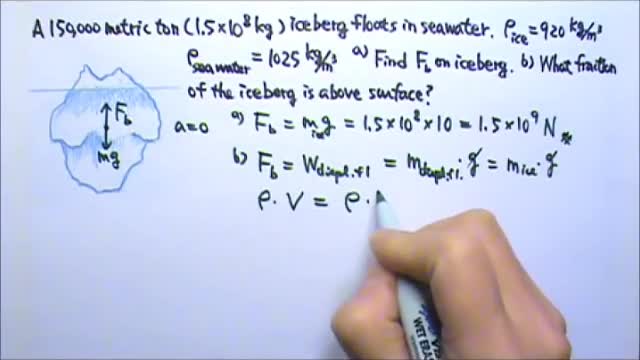 A 150,000 metric ton (1.5×10⁸ kg) iceberg floats in seawater. ρice = 920 kg/m³
ρseawater = 1025 kg/m³ a) Find Fb on iceberg. b) What fraction
of the iceberg is above surface?
Fb
mg
a=0
a) Fb = mice g = 1.5×10⁸×10 = 1.5×10⁹ N
b) Fb = Wdispl.fl = mdispl.fl. · g = mice · g
ρ · V = ρ ·
WET ERA